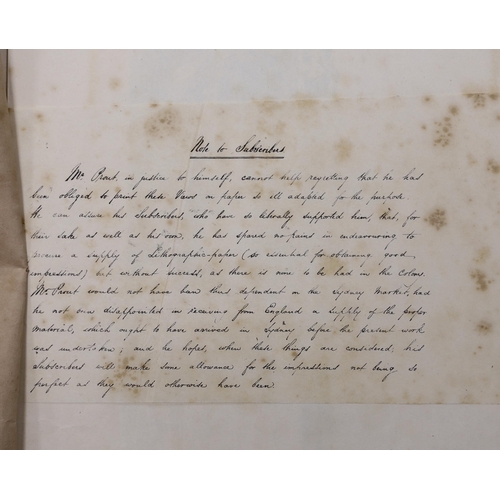 Note to Subscribers
Mr Prout, in justice to himself, cannot help regretting that he has
been obliged to print these Views on paper so ill adapted for the purpose.
He can assure his Subscribers, who have so liberally supported him, that, for
their sake as well as his own, he has spared no pains in endeavouring to
procure a supply of Lithographic-paper (so essential for obtaining good
impressions) but without success, as there is none to be had in the Colony.
Mr Prout would not have been thus dependent on the Sydney Market, had
he not been disappointed in receiving from England a supply of the proper
material, which ought to have arrived in Sydney before the present work
was undertaken; and he hopes, when these things are considered, his
Subscribers will make some allowance for the impressions not being so
perfect as they would otherwise have been.